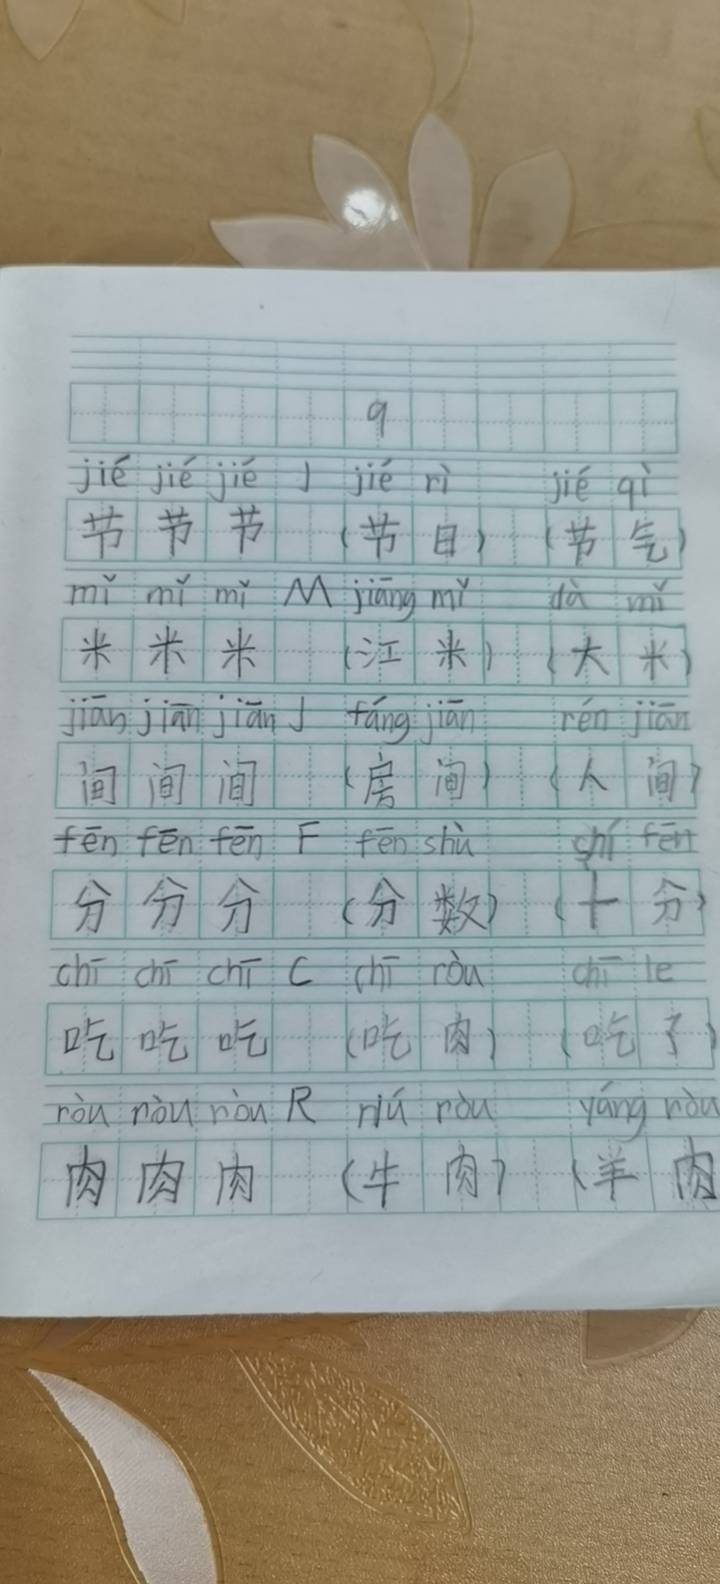 9
jié jié jié J jié rì jié qì
节 节 节 (节 日) (节 气)
mǐ mǐ mǐ M jiāng mǐ dà mǐ
米 米 米 (江 米) (大 米)
jiān jiān jiān J fáng jiān rén jiān
间 间 间 (房 间) (人 间)
fēn fēn fēn F fēn shù shí fēn
分 分 分 (分 数) (十 分)
chī chī chī C chī ròu chī le
吃 吃 吃 (吃 肉) (吃 了)
ròu ròu ròu R niú ròu yáng ròu
肉 肉 肉 (牛 肉) (羊 肉